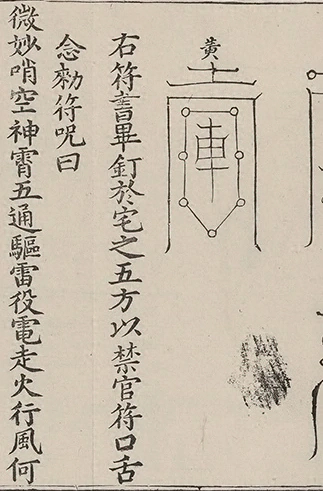 黃
右符書畢釘於宅之五方以禁官符口舌
念勑符呪曰
微妙哨空神霄五通驅雷役電走火行風何